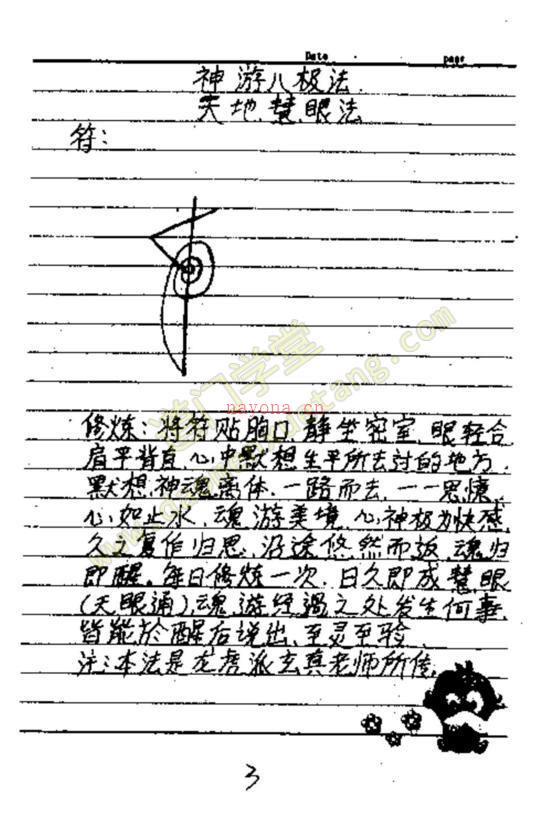 Date page
神游八极法
天地慧眼法
符：
修炼：将符贴胸口，静坐密室，眼轻合
肩平背直，心中默想生平所去过的地方，
默想神魂离体，一路而去，一一思憶
心如止水，魂游美境，心神极为快感，
久之复作归思，沿途悠然而返，魂归
即醒。每日修炼一次，日久即成慧眼
(天眼通)，魂遊经過之处发生何事，
皆能於醒后说出，至灵至验。
注：本法是龙虎派玄真老师所传。
3
道门学堂
nayona.cn